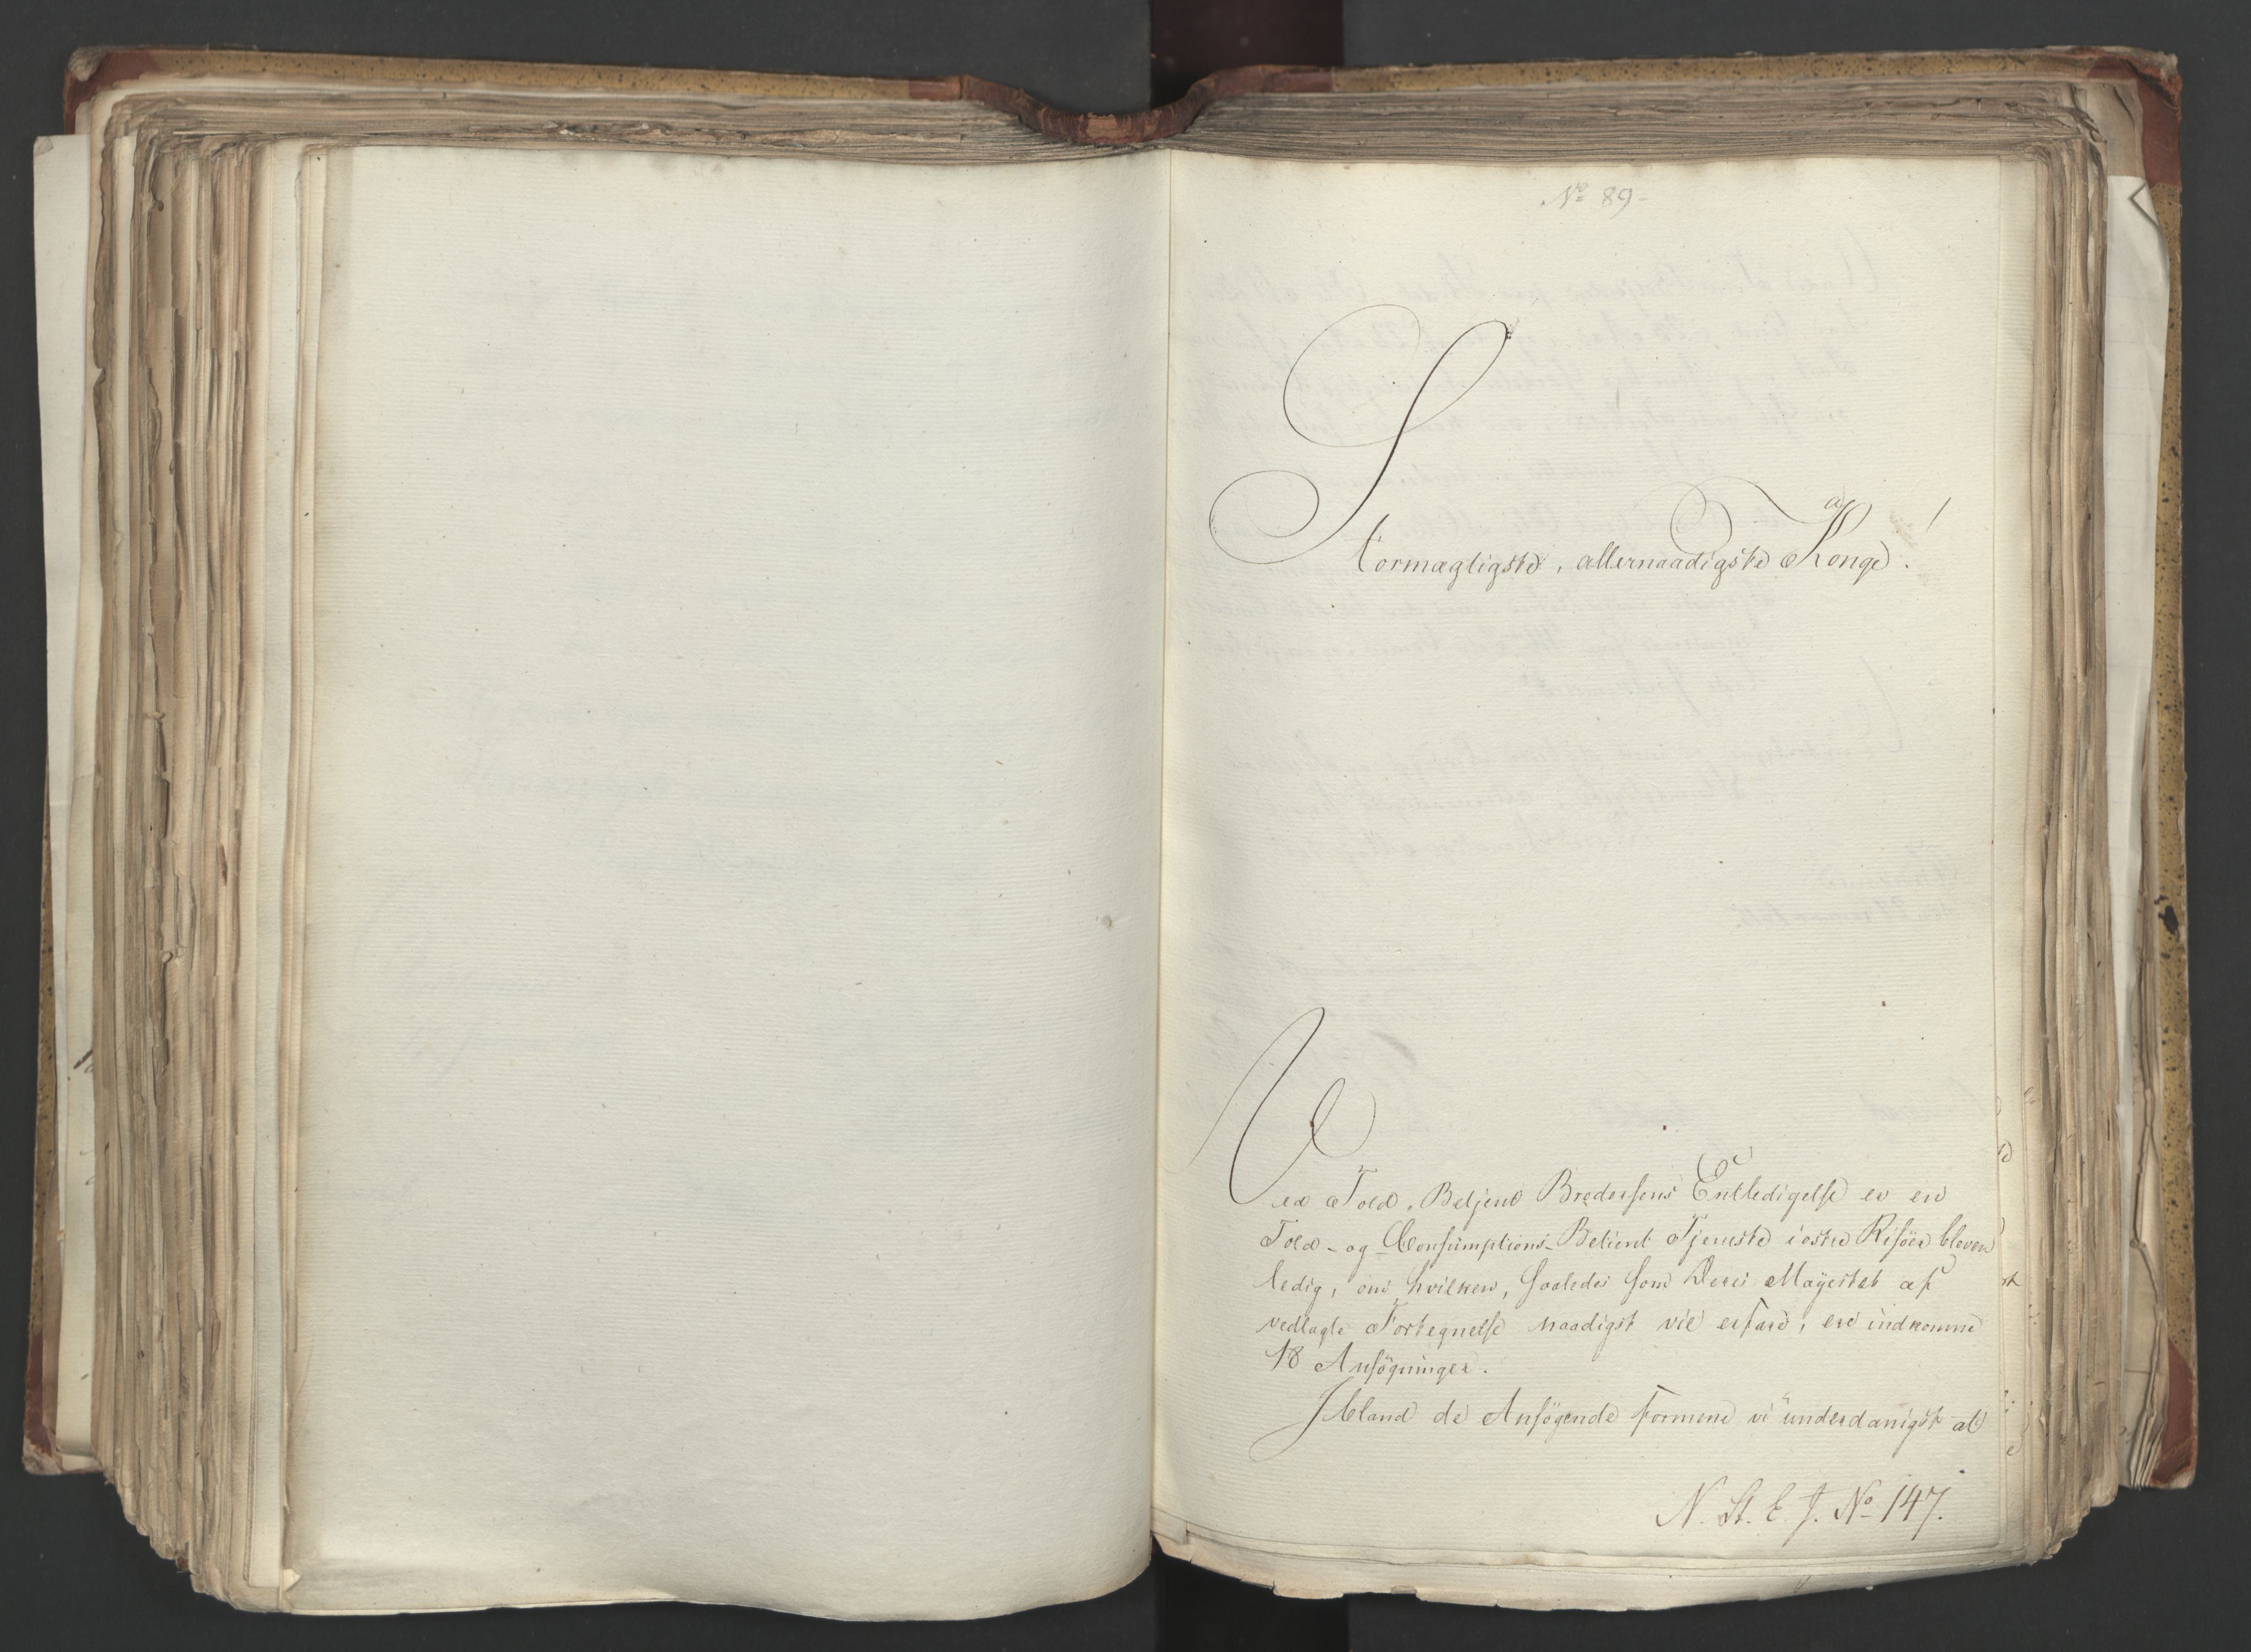 No 89-
Stormægtigste, allernaadigste Konge!
Ved Told-Betjent Bredersens Entledigelse er en
Told- og Consumptions-Betient Tjeneste i østre Risöer bleven
ledig, om hvilken, saaledes som Deres Mayestæt af
vedlagte Fortegnelse naadigst vil erfare, ere indkomne
18 Ansögninger.
Ibland de Ansögende formene vi underdanigst at
N. St. E. J. No 147.